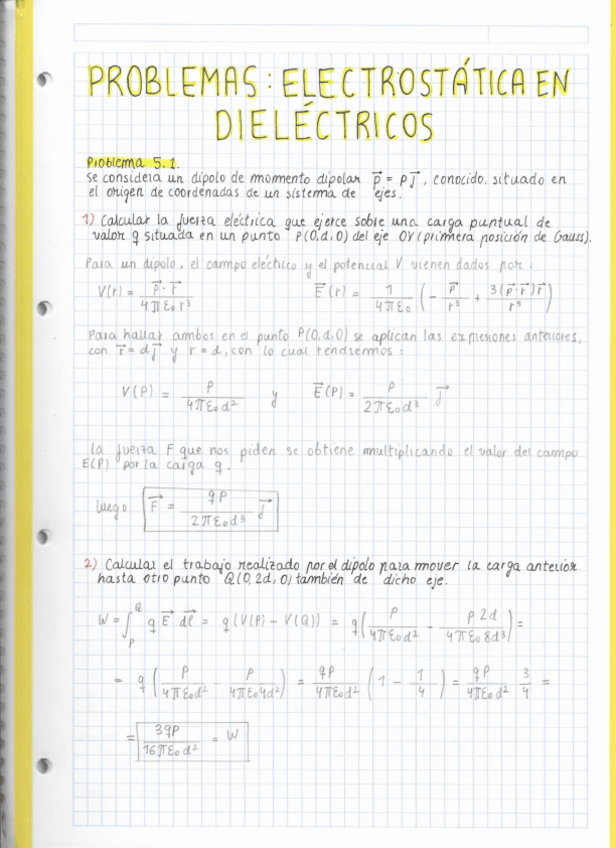 PROBLEMAS: ELECTROSTÁTICA EN
DIELÉCTRICOS
Problema 5.1.
Se considera un dipolo de momento dipolar p⃗ = p j⃗, conocido, situado en
el origen de coordenadas de un sistema de ejes.
1) Calcular la fuerza eléctrica que ejerce sobre una carga puntual de
valor q situada en un punto P(0,d,0) del eje OY (primera posición de Gauss).
Para un dipolo, el campo eléctrico y el potencial V vienen dados por:
V(r) = p⃗ · r⃗ / 4πε₀r³    E⃗(r) = 1/4πε₀ (- p⃗/r³ + 3(p⃗·r⃗)r⃗/r⁵)
Para hallar ambos en el punto P(0,d,0) se aplican las expresiones anteriores,
con r⃗ = d j⃗ y r = d, con lo cual tendremos:
V(P) = p / 4πε₀d²    y    E⃗(P) = p / 2πε₀d³ j⃗
La fuerza F que nos piden se obtiene multiplicando el valor del campo
E(P) por la carga q.
Luego F⃗ = qp / 2πε₀d³ j⃗
2) Calcular el trabajo realizado por el dipolo para mover la carga anterior
hasta otro punto Q(0,2d,0) también de dicho eje.
W = ∫_P^Q q E⃗ dl⃗ = q(V(P) - V(Q)) = q(p/4πε₀d² - p 2d/4πε₀8d³) =
= q (p/4πε₀d² - p/4πε₀4d²) = qp/4πε₀d² (1 - 1/4) = qp/4πε₀d² 3/4 =
= 3qp/16πε₀d² = W